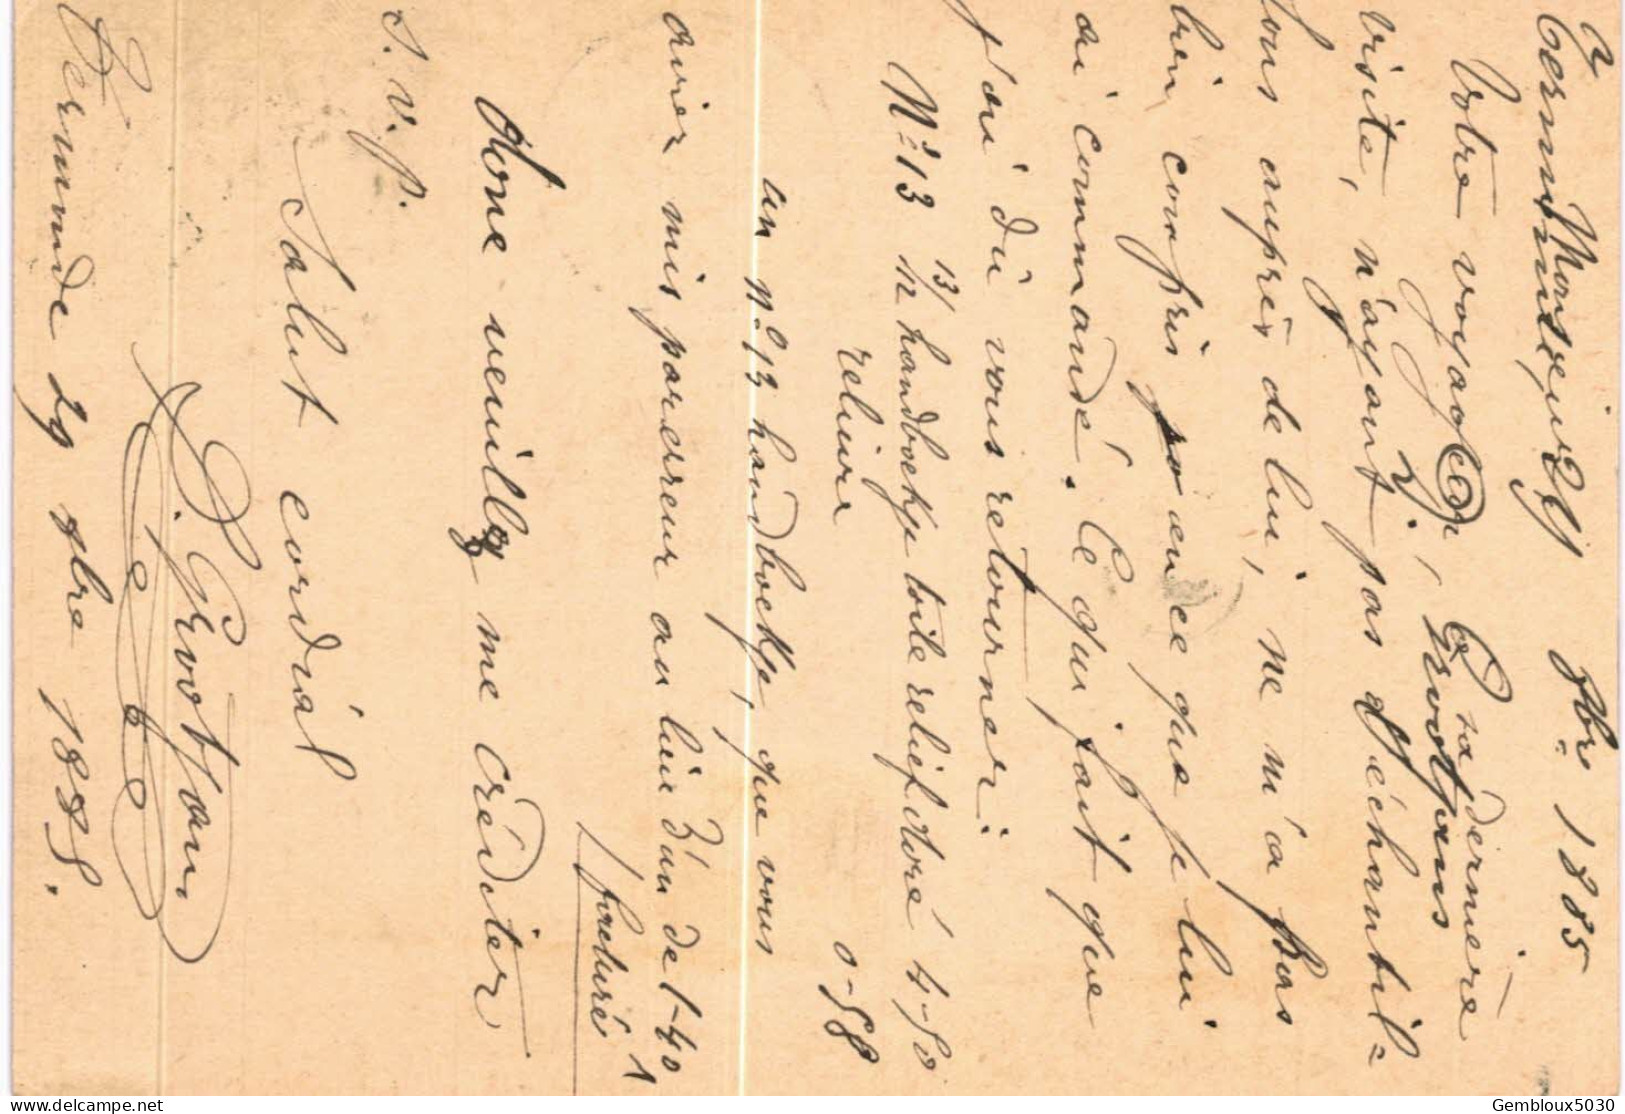 Monsieur
Votre voyageur, à sa dernière
visite, n'ayant pas d'échantil=
lons auprès de lui, ne m'a pas
bien compris en ce que je lui
ai commandé. Ce qui fait que
j'ai dû vous retourner:
N° 13 13/12 handboekje toile relief doré 4-50
reliure 0-58
un n° 13 handboekje, que vous
aviez mis par erreur au lieu d'un de 1-40
facturé 1
Donc veuillez me créditer
s. v. p.
Salut cordial
D. Grootjans
Termonde 29 9bre 1885.
Termonde 29 9bre 1885
Grootjans
Gembloux5030